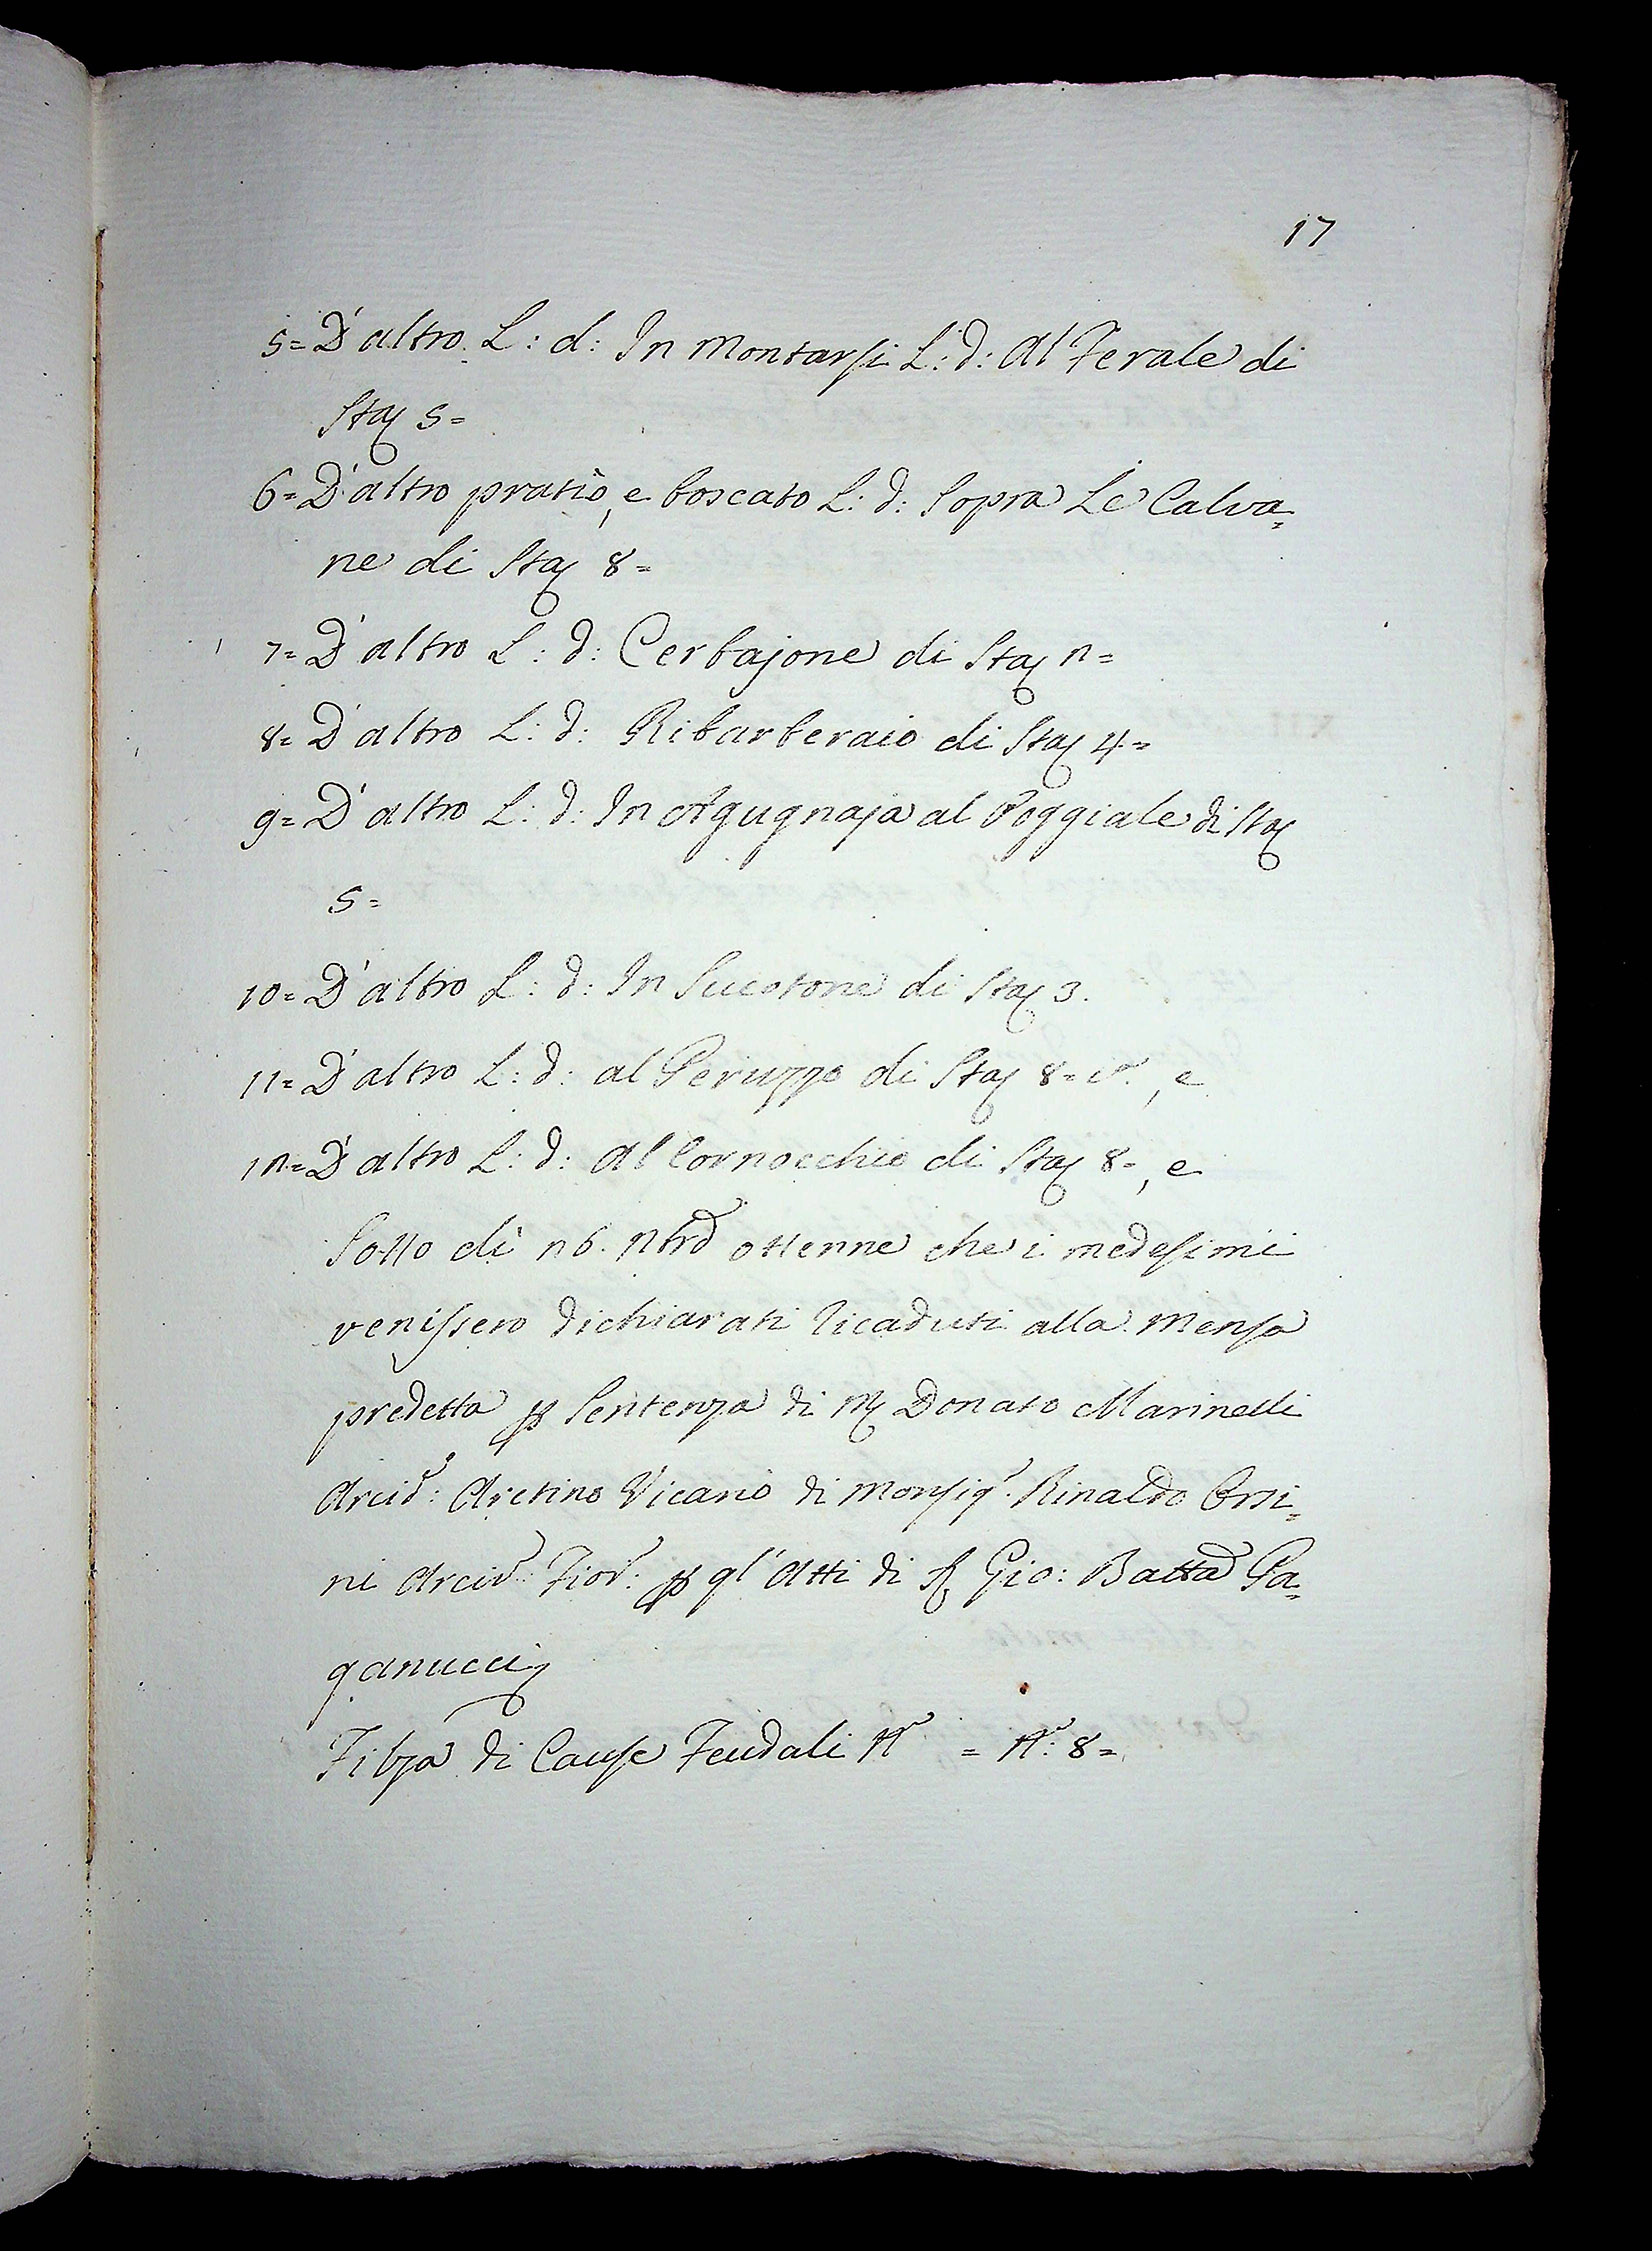 17
5= D'altro L: d: In Montarsi L: d: Al Ferale di
Staj 5=
6= D'altro pratiò, e boscato L: d: Sopra Le Calva=
ne di Staj 8=
7= D'altro L: d: Cerbajone di Staj 2=
8= D'altro L: d: Ribarberaio di Staj 4=
9= D'altro L: d: In Agugnaja al Poggiale di Staj
5=
10= D'altro L: d: In Sucotone di Staj 3.
11= D'altro L: d: al Peruzzo di Staj 8= , e
12= D'altro L: d: Al Cornocchio di Staj 8=, e
Sotto dì 26. ottenne che i medesimi
venissero dichiarati ricaduti alla Mensa
predetta p Sentenza di M Donato Marinelli
Arcid: Aretino Vicario di Monsig.r Rinaldo Orsi=
ni Arciv: Fior: p gl'Atti di S Gio: Batta Pa=
ganucci
Filza di Cause Feudali N = N: 8=